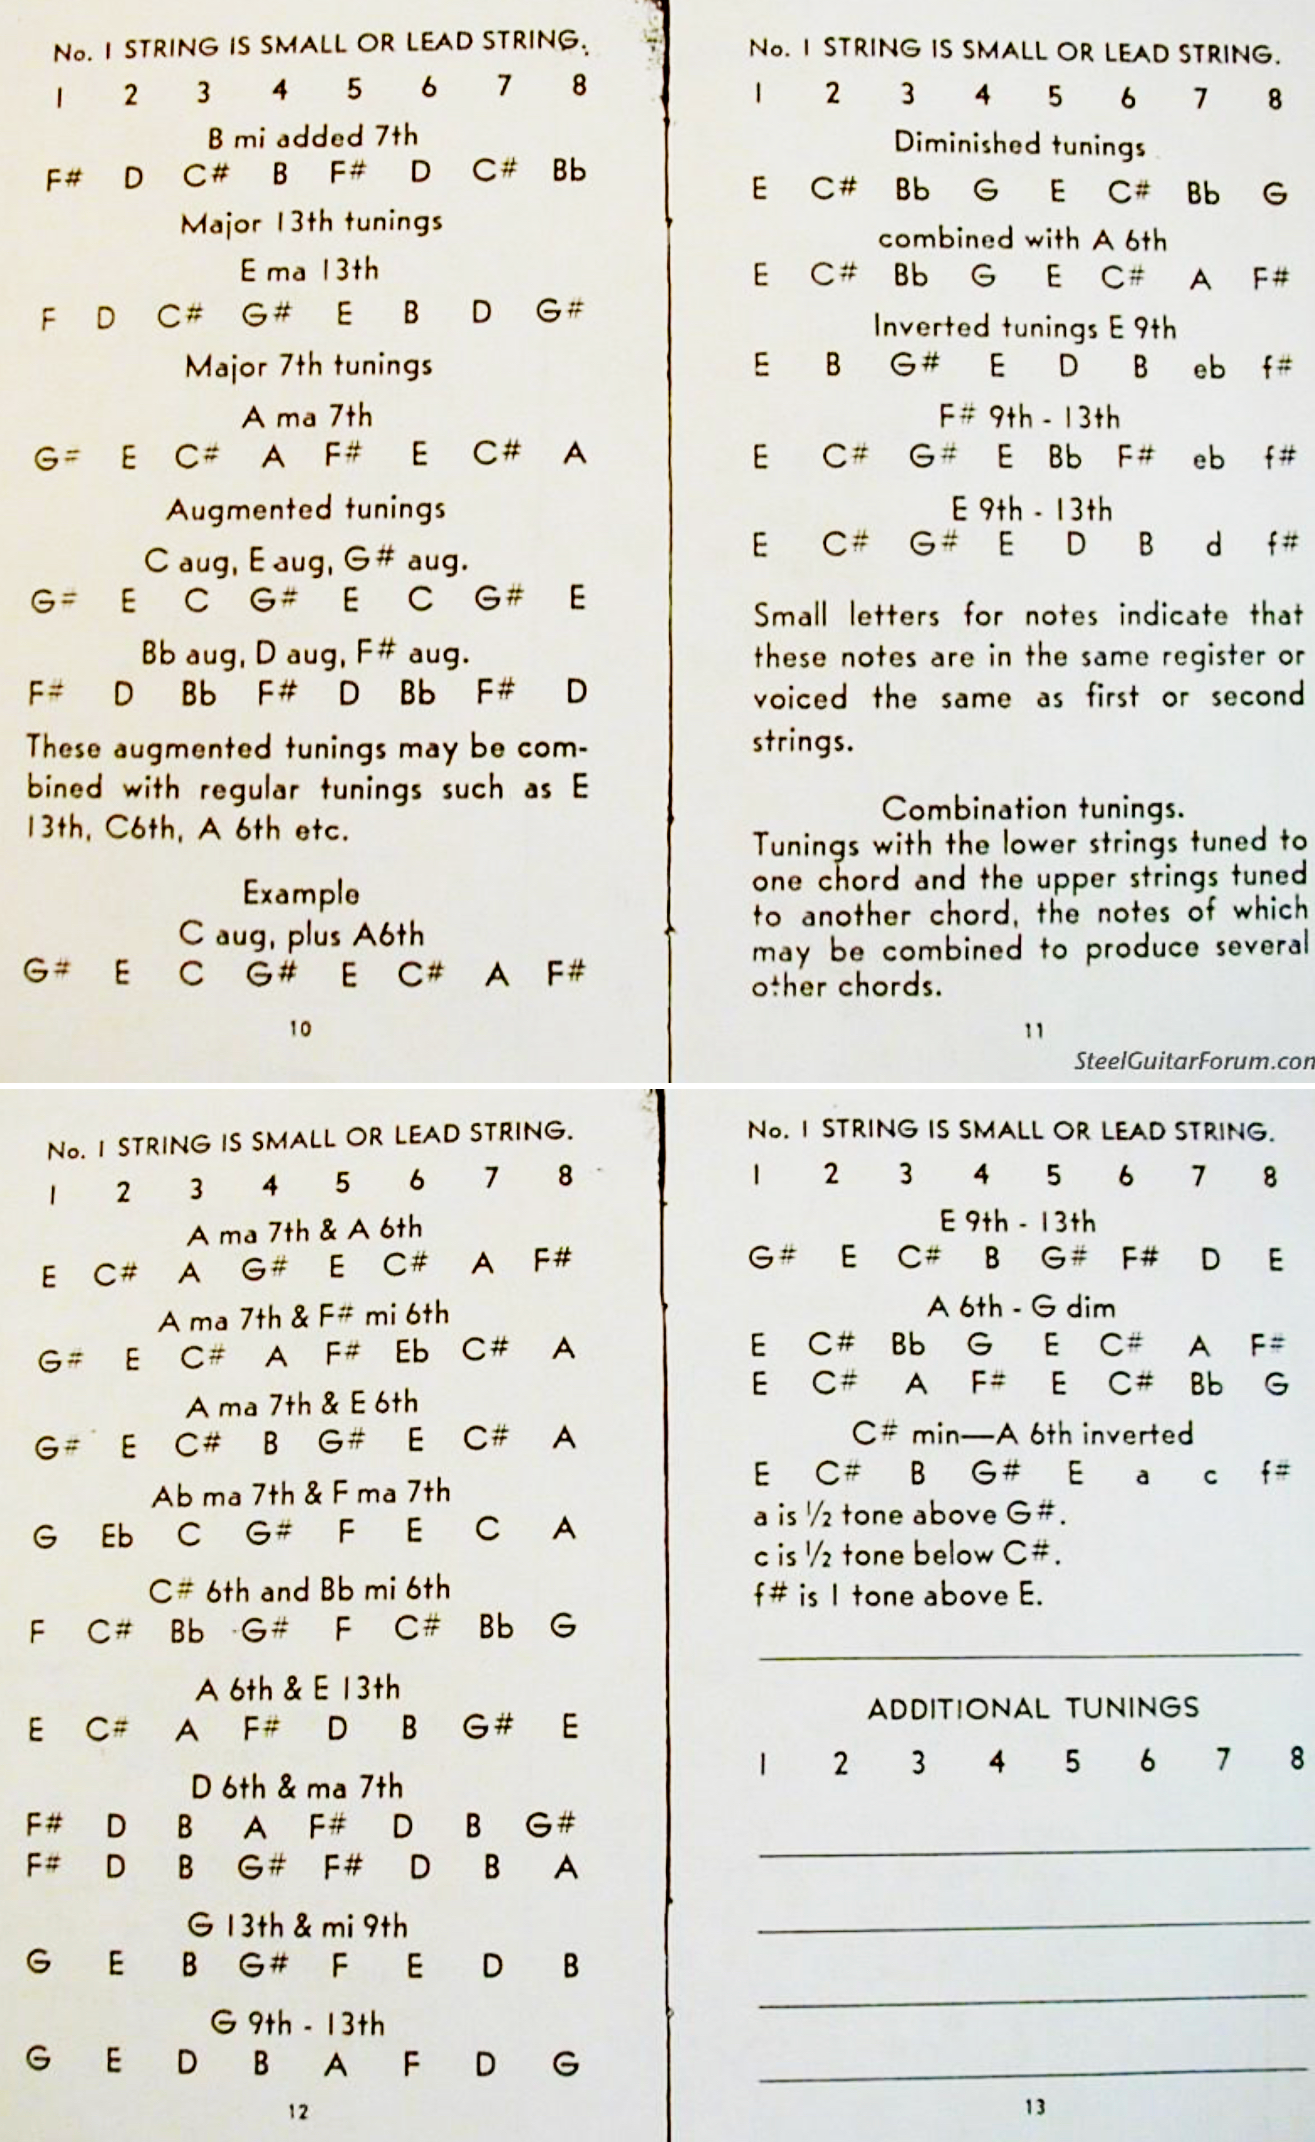 No. 1 STRING IS SMALL OR LEAD STRING.
1 2 3 4 5 6 7 8
B mi added 7th
F# D C# B F# D C# Bb
Major 13th tunings
E ma 13th
F D C# G# E B D G#
Major 7th tunings
A ma 7th
G# E C# A F# E C# A
Augmented tunings
C aug, E aug, G# aug.
G# E C G# E C G# E
Bb aug, D aug, F# aug.
F# D Bb F# D Bb F# D
These augmented tunings may be com-
bined with regular tunings such as E
13th, C6th, A 6th etc.
Example
C aug, plus A6th
G# E C G# E C# A F#
10
No. 1 STRING IS SMALL OR LEAD STRING.
1 2 3 4 5 6 7 8
Diminished tunings
E C# Bb G E C# Bb G
combined with A 6th
E C# Bb G E C# A F#
Inverted tunings E 9th
E B G# E D B eb f#
F# 9th - 13th
E C# G# E Bb F# eb f#
E 9th - 13th
E C# G# E D B d f#
Small letters for notes indicate that
these notes are in the same register or
voiced the same as first or second
strings.
Combination tunings.
Tunings with the lower strings tuned to
one chord and the upper strings tuned
to another chord, the notes of which
may be combined to produce several
other chords.
11
SteelGuitarForum.com
No. 1 STRING IS SMALL OR LEAD STRING.
1 2 3 4 5 6 7 8
A ma 7th & A 6th
E C# A G# E C# A F#
A ma 7th & F# mi 6th
G# E C# A F# Eb C# A
A ma 7th & E 6th
G# E C# B G# E C# A
Ab ma 7th & F ma 7th
G Eb C G# F E C A
C# 6th and Bb mi 6th
F C# Bb G# F C# Bb G
A 6th & E 13th
E C# A F# D B G# E
D 6th & ma 7th
F# D B A F# D B G#
F# D B G# F# D B A
G 13th & mi 9th
G E B G# F E D B
G 9th - 13th
G E D B A F D G
12
No. 1 STRING IS SMALL OR LEAD STRING.
1 2 3 4 5 6 7 8
E 9th - 13th
G# E C# B G# F# D E
A 6th - G dim
E C# Bb G E C# A F#
E C# A F# E C# Bb G
C# min—A 6th inverted
E C# B G# E a c f#
a is ½ tone above G#.
c is ½ tone below C#.
f# is 1 tone above E.
ADDITIONAL TUNINGS
1 2 3 4 5 6 7 8
13